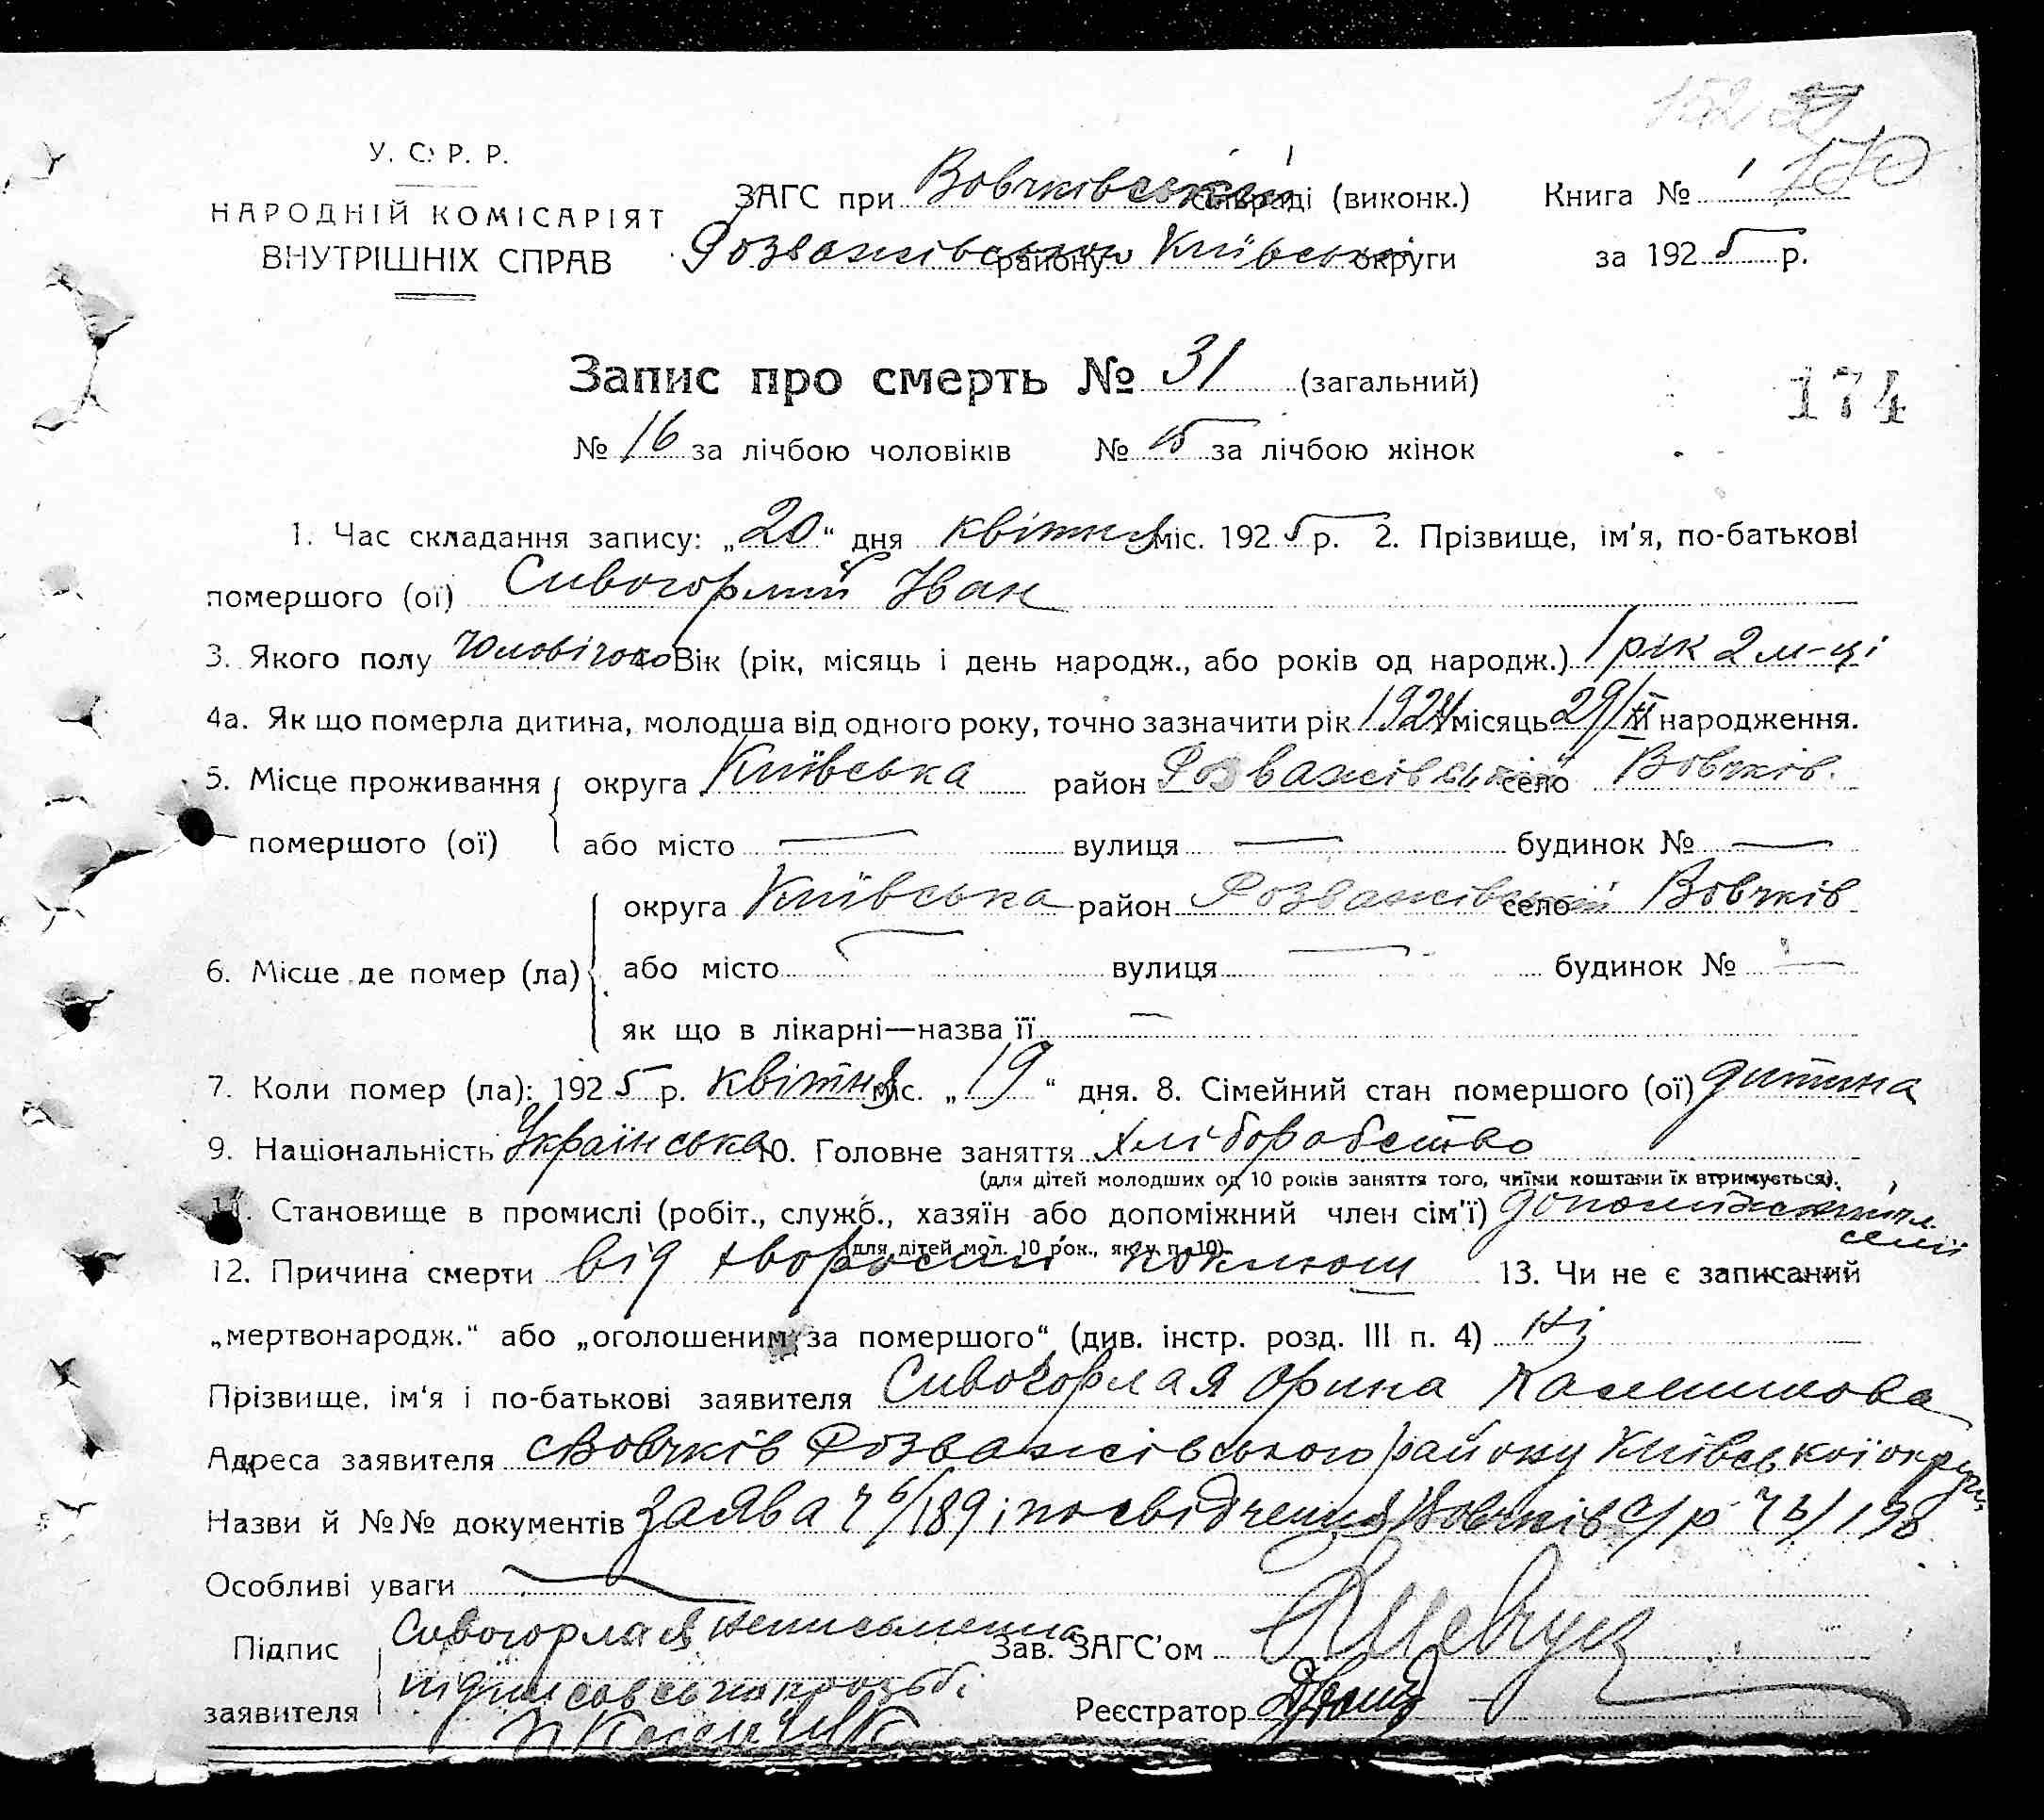 У. С. Р. Р.
НАРОДНІЙ КОМІСАРІЯТ
ВНУТРІШНІХ СПРАВ
ЗАГС при Вовчківській сільраді (виконк.) Книга № 1
Розважівського району Київської округи за 1925 р.
Запис про смерть № 31 (загальний)
174
№ 16 за лічбою чоловіків № 15 за лічбою жінок
1. Час складання запису: „20“ дня квітня міс. 1925 р. 2. Прізвище, ім'я, по-батькові
помершого (ої) Сивогорлий Іван
3. Якого полу чоловічого Вік (рік, місяць і день народж., або років од народж.) 1 рік 2 м-ці
4а. Як що померла дитина, молодша від одного року, точно зазначити рік 1924 місяць 29/II народження.
5. Місце проживання округа Київська район Розважівський село Вовчків.
помершого (ої) або місто — вулиця — будинок № —
округа Київська район Розважівський село Вовчків
6. Місце де помер (ла) або місто — вулиця — будинок № —
як що в лікарні—назва її —
7. Коли помер (ла): 1925 р. квітня міс. „19“ дня. 8. Сімейний стан помершого (ої) дитина
9. Національність Українська 10. Головне заняття хліборобство
(для дітей молодших од 10 років заняття того, чиїми коштами їх втримується).
11. Становище в промислі (робіт., служб., хазяїн або допоміжний член сім'ї) допоміжний чл. семії
(для дітей мол. 10 рок., як у п. 10)
12. Причина смерти від хворости коклюш 13. Чи не є записаний
„мертвонародж.“ або „оголошеним за помершого“ (див. інстр. розд. III п. 4) Ні
Прізвище, ім'я і по-батькові заявителя Сивогорлая Орина
Адреса заявителя с Вовчків Розважівського району Київської округи
Назви й №№ документів заява ч 6/189 і посвідчення Вовчків с/р ч 6/190
Особливі уваги —
Підпис заявителя Сивогорлая неписьменна
Зав. ЗАГС'ом
Реєстратор